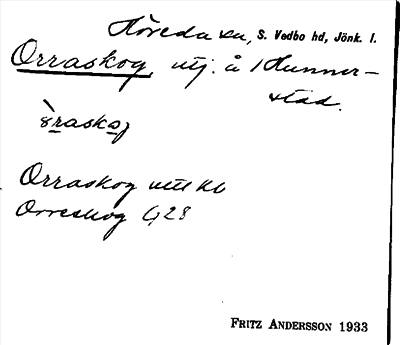 Höreda sn, S. Vedbo hd, Jönk. l.
Orraskog, utj. å 1 Hunner-
stad.
òraskog
Orraskog utt kb
Orreskog G 28
FRITZ ANDERSSON 1933